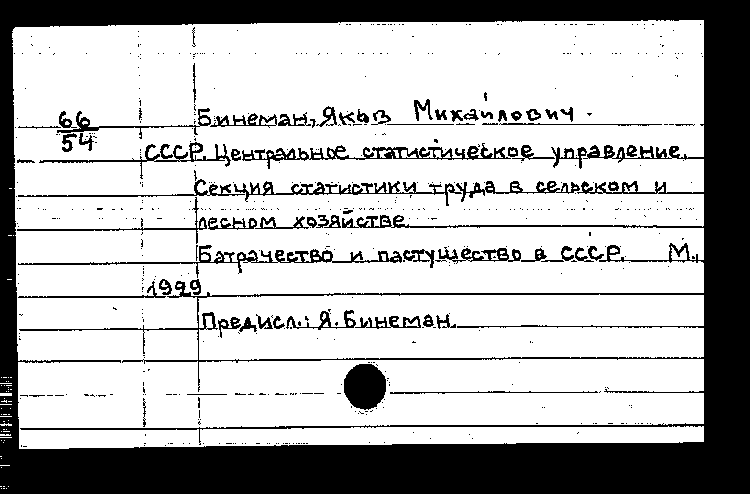 Бинеман, Яков Михайлович.
66
54
СССР. Центральное статистическое управление.
Секция статистики труда в сельском и
лесном хозяйстве.
Батрачество и пастушество в СССР. М.,
1929.
Предисл.: Я. Бинеман.